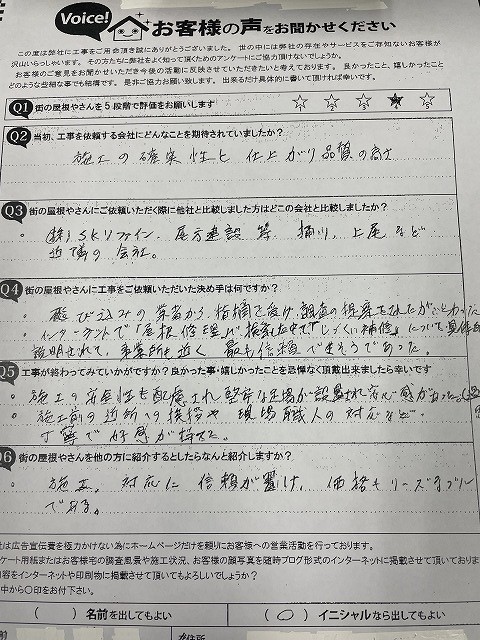 Voice! お客様の声をお聞かせください
この度は弊社に工事をご用命頂き誠にありがとうございました。世の中には弊社の存在やサービスをご存知ないお客様が
沢山いらっしゃいます。その方たちに弊社をよく知って頂くためのアンケートにご協力頂けないでしょうか。
お客様のご意見をお聞かせいただき今後の活動に反映させていただきたいと考えております。良かったこと、嬉しかったこと
どのような些細な事でも結構です。是非ご協力お願い致します。出来るだけ具体的に書いて頂ければ幸いです。
Q1 街の屋根やさんを5段階で評価をお願いします
Q2 当初、工事を依頼する会社にどんなことを期待されていましたか?
施工の確実性と仕上がり品質の高さ
Q3 街の屋根やさんにご依頼いただく際に他社と比較しました方はどこの会社と比較しましたか?
(株)SKリファイン、尾方建設等 桶川、上尾など
近隣の会社。
Q4 街の屋根やさんに工事をご依頼いただいた決め手は何ですか?
飛び込みの業者から指摘を受け、調査の提案をされたが
インターネットで「屋根修理」で検索 「しっくい補修」について具体的
説明されて、事業所も近く 最も信頼できそうであった。
Q5 工事が終わってみていかがですか?良かった事・嬉しかったことを忌憚なく頂戴出来ましたら幸いです
施工の安全性も配慮され堅牢な足場が設置され安心感があった
施工前の近所への挨拶や 現場職人の対応など
丁寧で好感が持てた。
Q6 街の屋根やさんを他の方に紹介するとしたらなんと紹介しますか?
施工、対応に信頼が置け、価格もリーズナブル
である。
社は広告宣伝費を極力かけない為にホームページだけを頼りにお客様への営業活動を行っております。
ケート用紙またはお客様宅の調査風景や施工状況、お客様の顔写真を随時ブログ形式のインターネットに掲載させて頂いておりま
内容をインターネットや印刷物に掲載させて頂いてもよろしいでしょうか?
中から○印をお付下さい。
( ) 名前を出してもよい ( ○ ) イニシャルなら出してもよい
ご住所